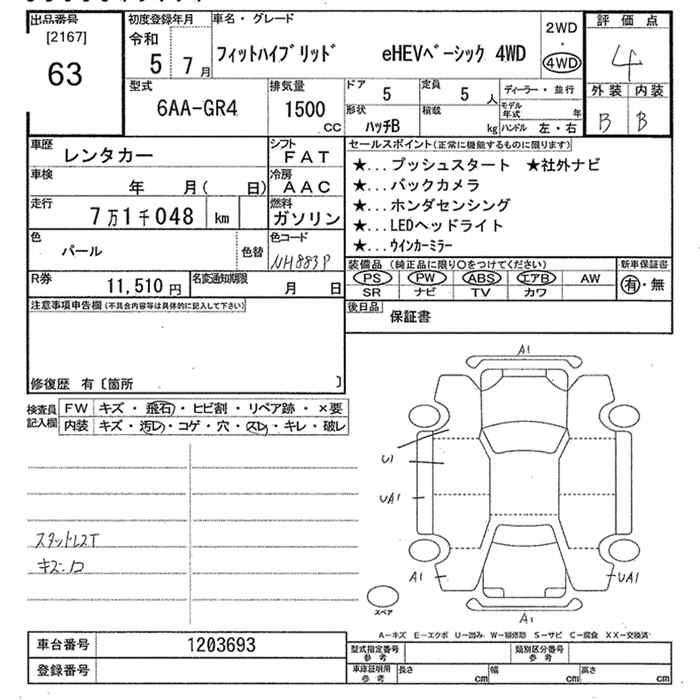 出品番号
[2167]
63
初度登録年月
令和
5 7月
車名・グレード
フィットハイブリッド eHEVベーシック 4WD
2WD
・
4WD
評価点
4
外装 内装
B B
型式
6AA-GR4
排気量
1500
CC
ドア
5
定員
5人
形状
ハッチB
積載
kg
ディーラー・並行
モデル年式 年
ハンドル 左・右
車歴
レンタカー
シフト
FAT
車検
年 月( 日)
冷房
AAC
走行
7万1千048 km
燃料
ガソリン
色
パール
色替
色コード
NH883P
R券
11,510円
名変通知期限
月 日
セールスポイント(正常に機能するものに限ります)
★...プッシュスタート ★社外ナビ
★...バックカメラ
★...ホンダセンシング
★...LEDヘッドライト
★...ウインカーミラー
装備品(純正品に限り〇をつけてください)
PS PW ABS エアB AW
SR ナビ TV カワ
新車保証書
有・無
後日品
保証書
注意事項申告欄(不具合内容等は具体的に記入して下さい)
修復歴 有〔箇所 〕
検査員記入欄
FW キズ・飛石・ヒビ割・リペア跡・×要
内装 キズ・汚レ・コゲ・穴・スレ・キレ・破レ
スタッドレスT
キズ・凹
A1
U1
UA1
A1
UA1
A1
スペア
A-キズ E-エクボ U-凹み W-補修跡 S-サビ C-腐食 XX-交換済
車台番号
1203693
登録番号
型式指定番号
参考
類別区分番号
参考
車庫証明用
参考
長さ cm
幅 cm
高さ cm